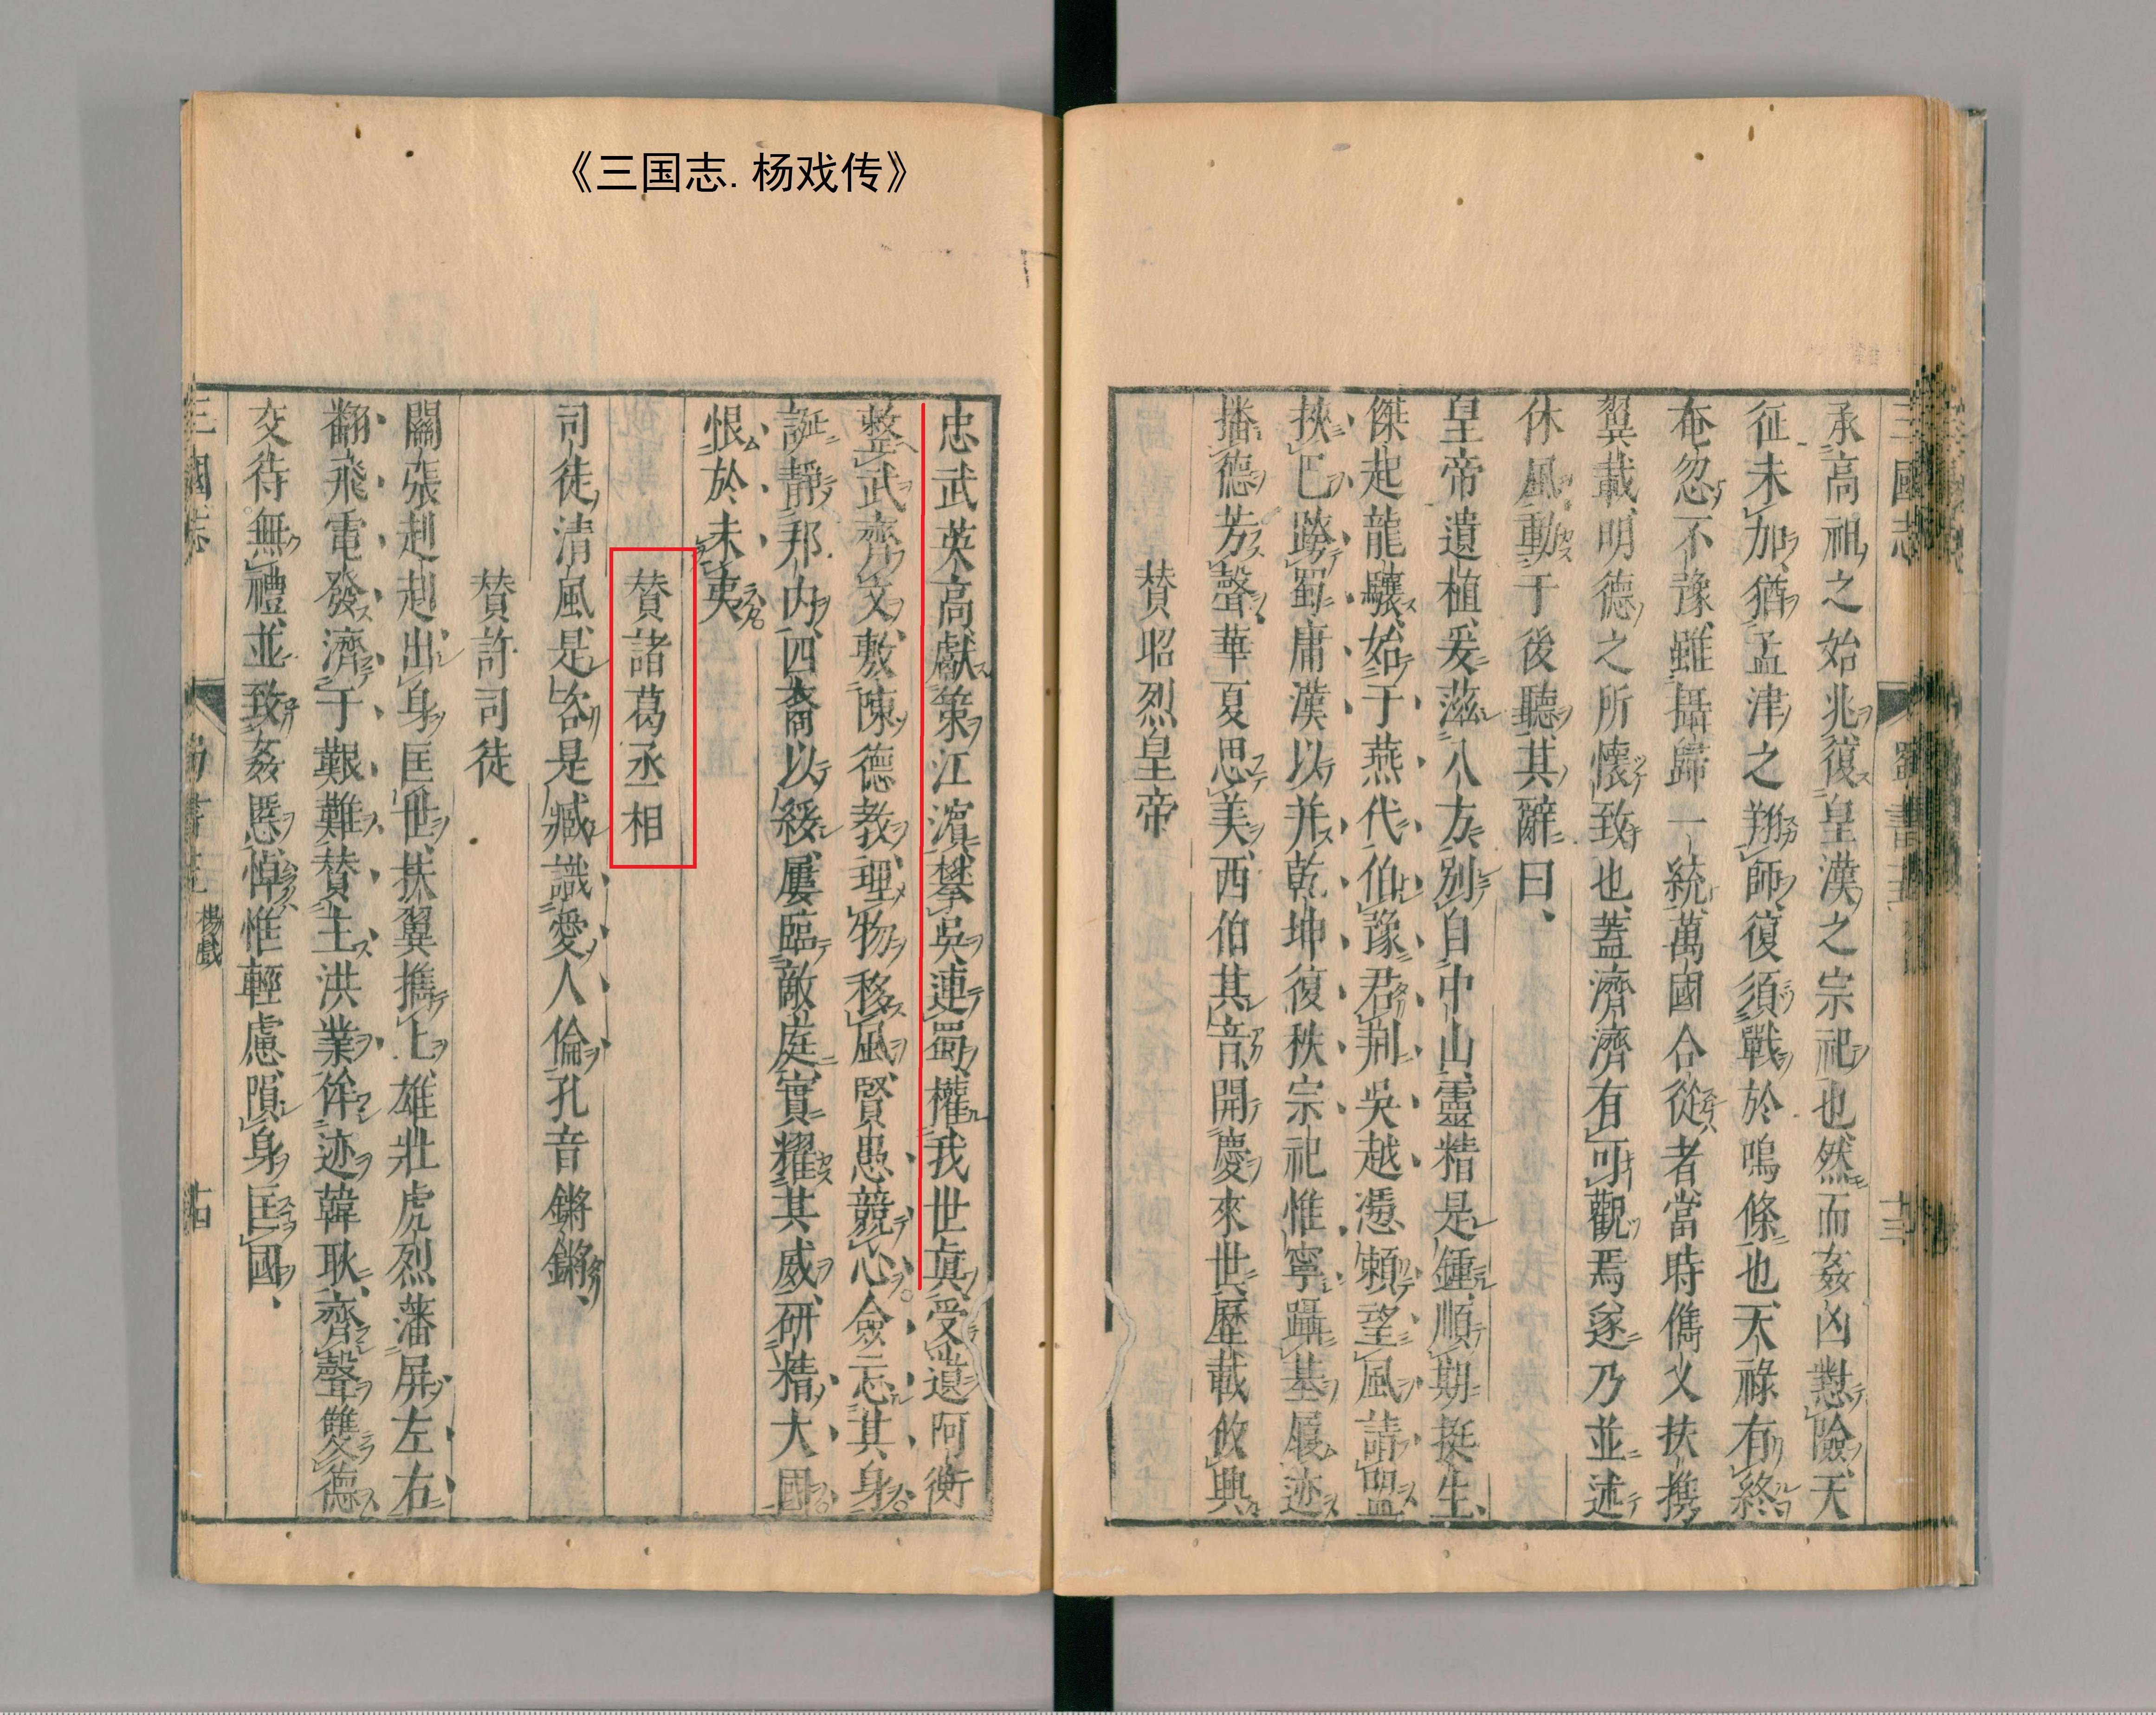 《三国志.杨戏传》
三國志
蜀書十五
十三
承高祖之始兆復皇漢之宗祀也然而姦凶懟險天
征未加猶孟津之翔師復須戰於鳴條也天祿有終
奄忽不豫雖攝歸一統萬國合從者當時儁乂扶攜
翼載明德之所懷致也蓋濟濟有可觀焉遂乃並述
休風動于後聽其辭曰
皇帝遺植爰滋八方別自中山靈精是鍾順期挺生
傑起龍驤始于燕代伯豫君荆吳越憑賴望風請盟
挾巴跨蜀庸漢以并乾坤復秩宗祀惟寧躡基履迹
播德芳聲華夏思美西伯其音開慶來世歷載攸興
贊昭烈皇帝
忠武英高獻策江濱攀吳連蜀權我世真受遺阿衡
整武齊文敷陳德教理物移風賢愚競心僉忘其身
誕靜邦內四裔以綏屢臨敵庭實耀其威研精大國
恨於未夷
贊諸葛丞相
司徒清風是咨是臧識愛人倫孔音鏘鏘
贊許司徒
關張赳赳出身匡世扶翼攜上雄壯虎烈藩屏左右
翻飛電發濟于艱難贊主洪業侔迹韓耿齊聲雙德
交待無禮並致姦慝悼惟輕慮隕身匡國
三國志
楊戲